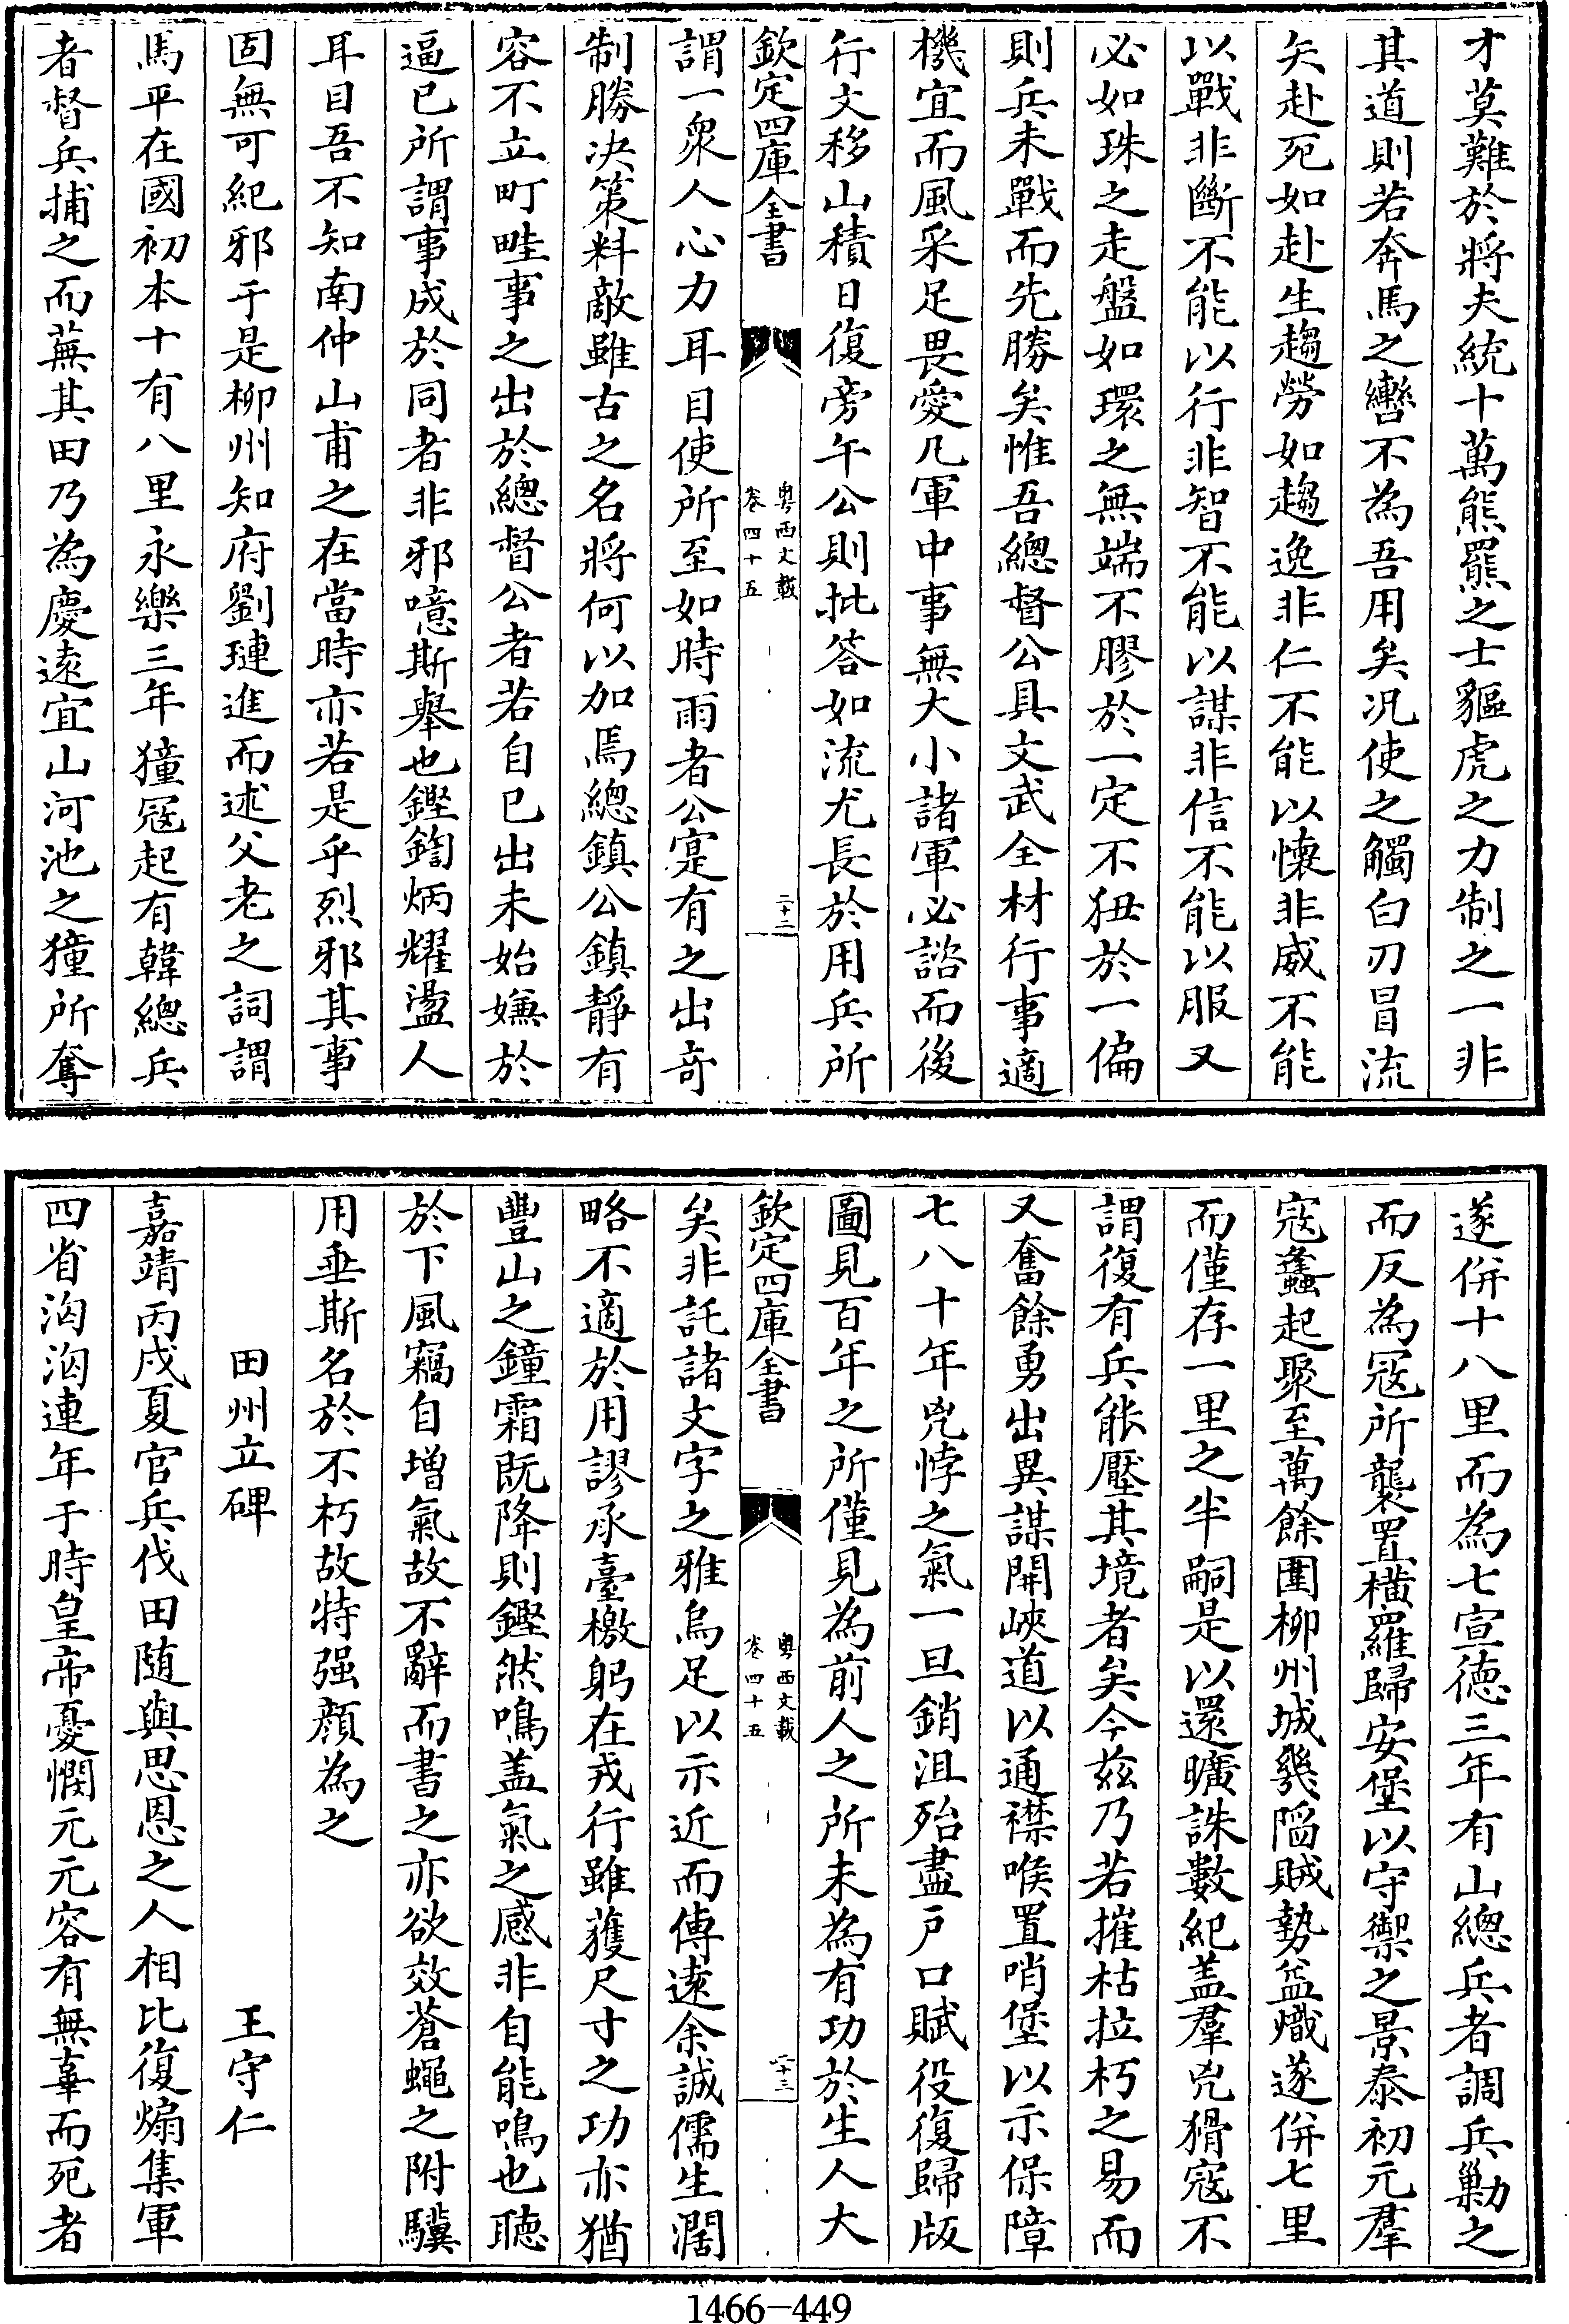 才莫難於將夫統十萬熊羆之士貙虎之力制之一非
其道則若奔馬之轡不為吾用矣况使之觸白刃冒流
矢赴死如赴生趨勞如趨逸非仁不能以懷非威不能
以戰非斷不能以行非智不能以謀非信不能以服又
必如珠之走盤如環之無端不膠於一定不狃於一偏
則兵未戰而先勝矣惟吾總督公具文武全材行事適
機宜而風采足畏愛凡軍中事無大小諸軍必諮而後
行文移山積日復旁午公則批答如流尤長於用兵所
欽定四庫全書
粤西文載
卷四十五
二十二
謂一衆人心力耳目使所至如時雨者公寔有之出奇
制勝决策料敵雖古之名將何以加焉總鎮公鎮靜有
容不立町畦事之出於總督公者若自已出未始嫌於
逼已所謂事成於同者非邪噫斯舉也鏗鍧炳耀盪人
耳目吾不知南仲山甫之在當時亦若是乎烈邪其事
固無可紀邪于是柳州知府劉璉進而述父老之詞謂
馬平在國初本十有八里永樂三年獞冦起有韓總兵
者督兵捕之而蕪其田乃為慶遠宜山河池之獞所奪
遂併十八里而為七宣德三年有山總兵者調兵勦之
而反為冦所襲置横羅歸安堡以守禦之景泰初元羣
寇蠭起聚至萬餘圍柳州城㡬陷賊勢益熾遂併七里
而僅存一里之半嗣是以還曠誅數紀盖羣兇猾寇不
謂復有兵能壓其境者矣今兹乃若摧枯拉朽之易而
又奮餘勇出異謀開峽道以通襟喉置哨堡以示保障
七八十年兇悖之氣一旦銷沮殆盡戸口賦役復歸版
圖見百年之所僅見為前人之所未為有功於生人大
欽定四庫全書
粤西文載
卷四十五
二十三
矣非託諸文字之雅烏足以示近而傳遠余誠儒生濶
略不適於用謬承臺檄躬在戎行雖蒦尺寸之功亦猶
豐山之鐘霜既降則鏗然鳴盖氣之感非自能鳴也聴
於下風竊自增氣故不辭而書之亦欲效蒼蠅之附驥
用垂斯名於不朽故特强顔為之
田州立碑 王守仁
嘉靖丙戌夏官兵伐田随與思恩之人相比復煽集軍
四省洶洶連年于時皇帝憂憫元元容有無辜而死者
1466-449